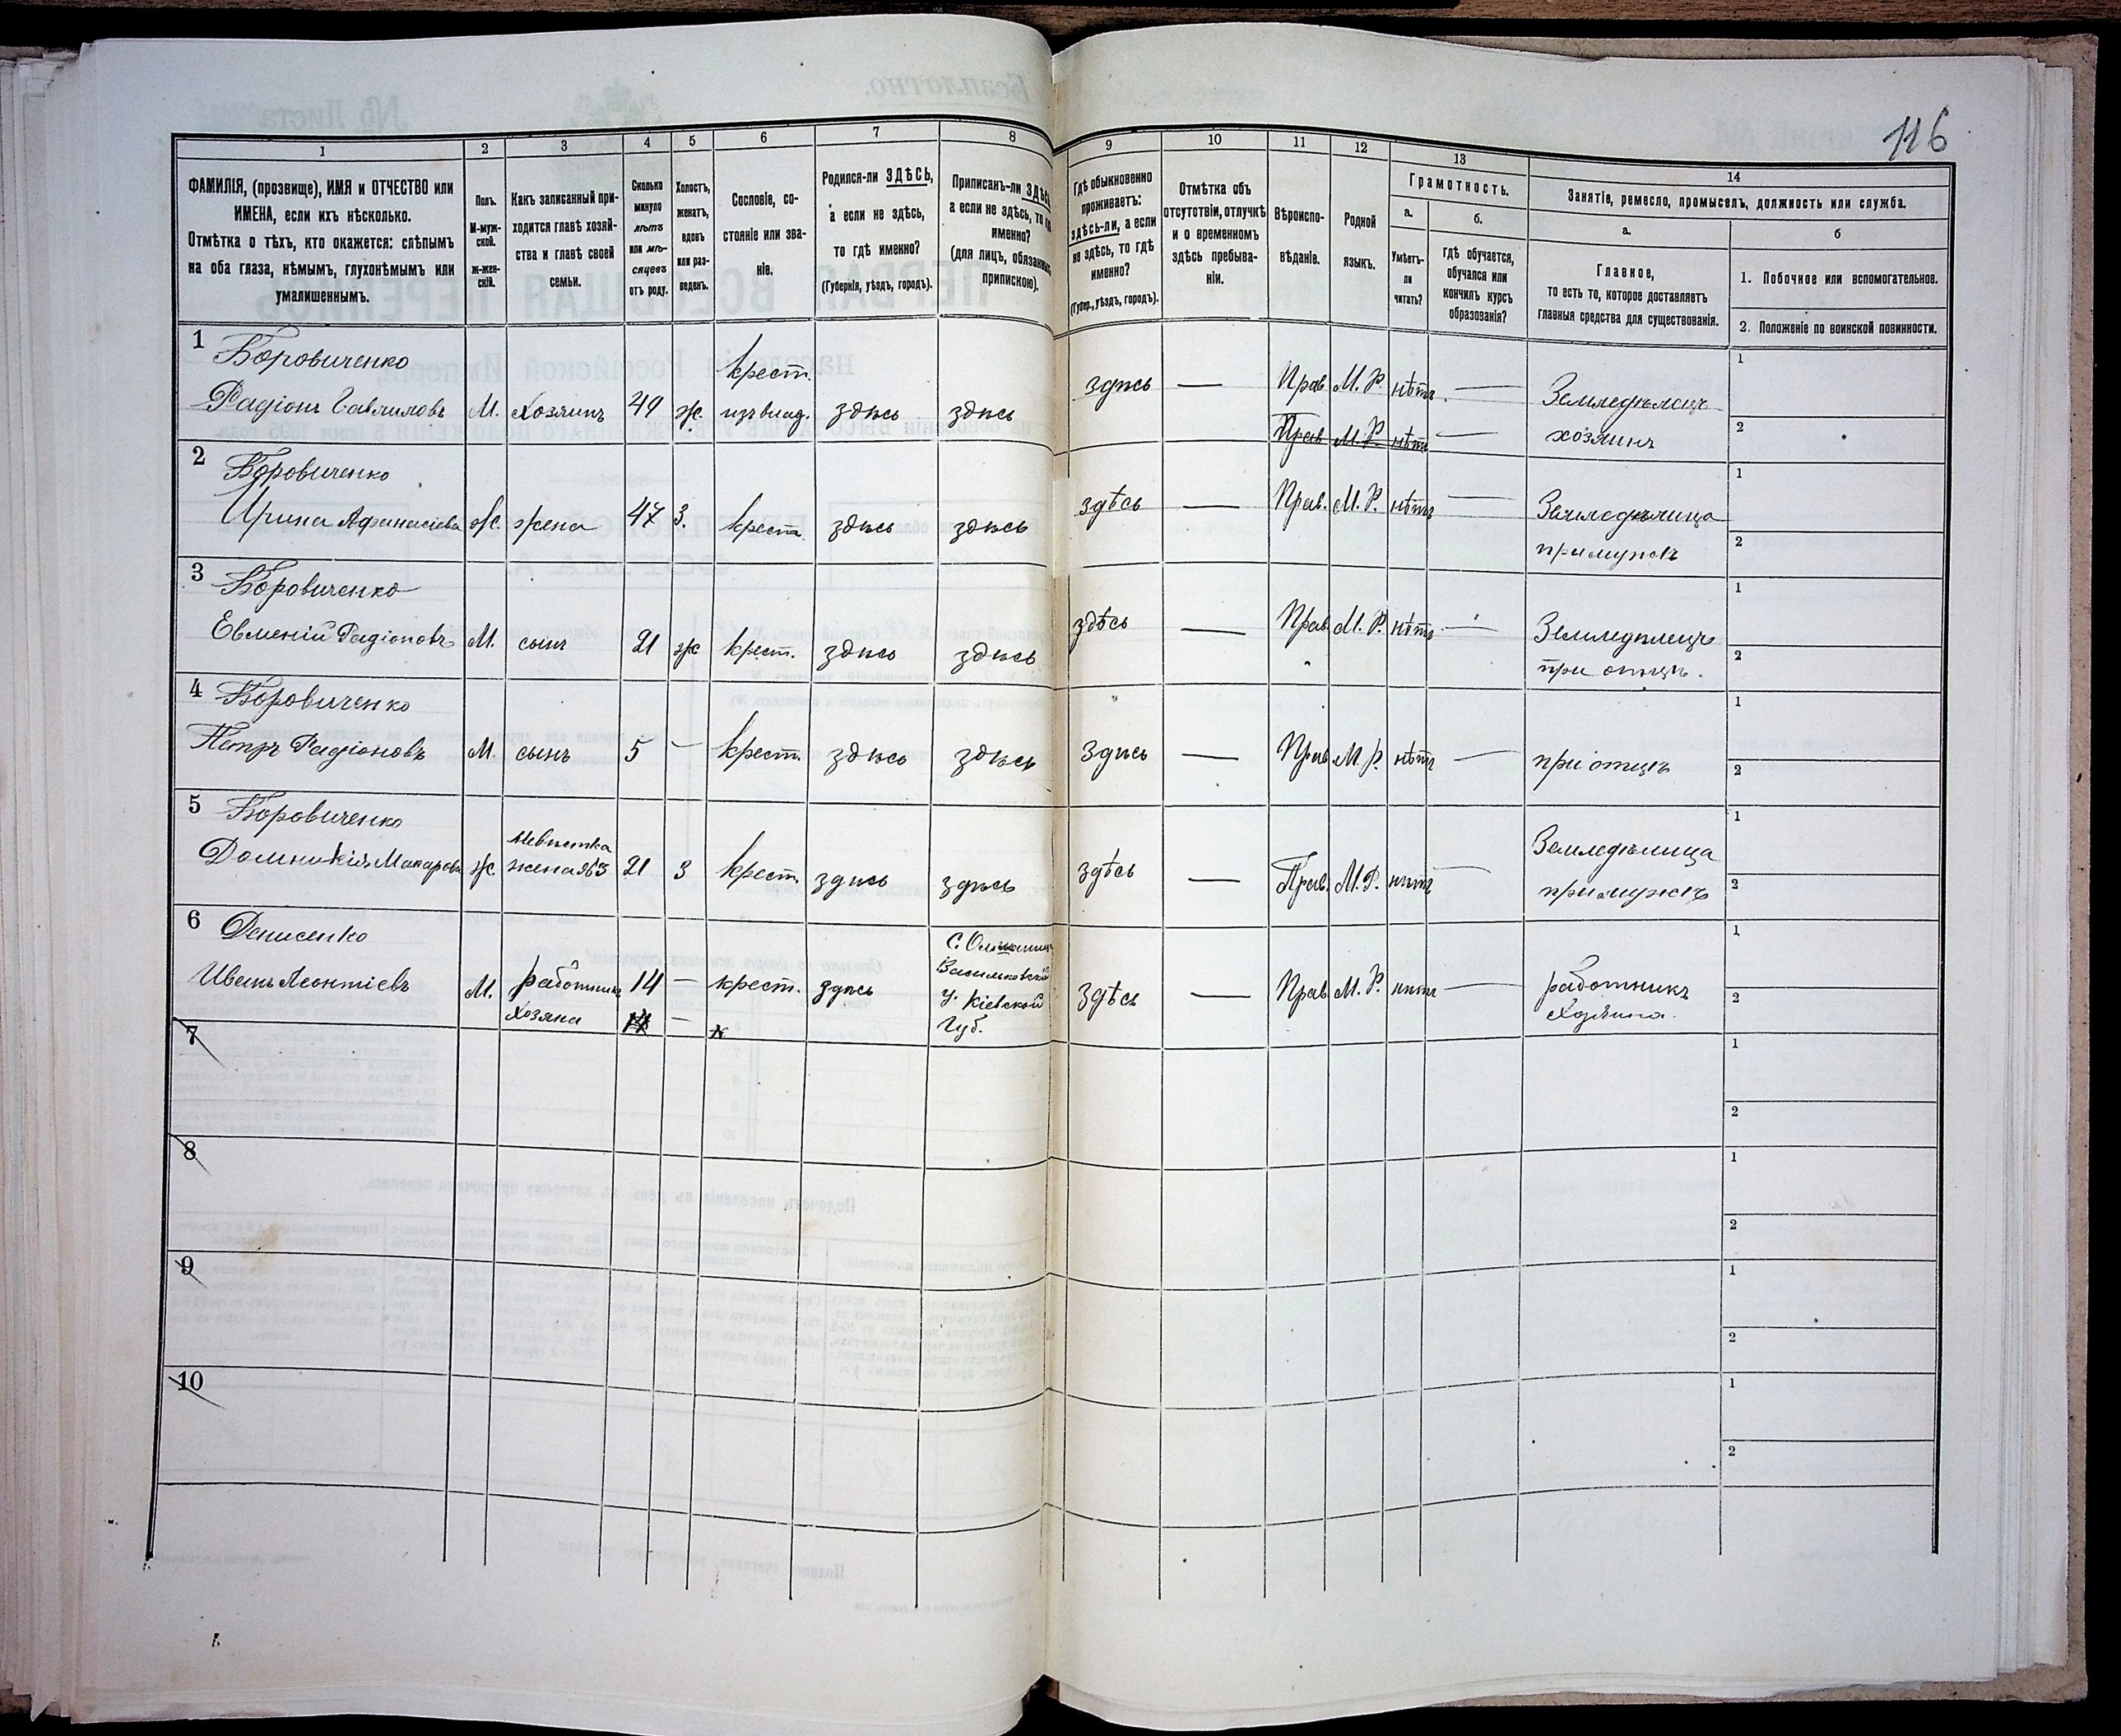 116
1 2 3 4 5 6 7 8 9 10 11 12 13 14
ФАМИЛІЯ, (прозвище), ИМЯ и ОТЧЕСТВО или
ИМЕНА, если ихъ нѣсколько.
Отмѣтка о тѣхъ, кто окажется: слѣпымъ
на оба глаза, нѣмымъ, глухонѣмымъ или
умалишеннымъ.
Полъ.
М-муж-
ской.
Ж-жен-
скій.
Какъ записанный при-
ходится главѣ хозяй-
ства и главѣ своей
семьи.
Сколько
минуло
лѣтъ
или мѣ-
сяцевъ
отъ роду.
Холостъ,
женатъ,
вдовъ
или раз-
веденъ.
Сословіе, со-
стояніе или зва-
ніе.
Родился-ли ЗДѢСЬ,
а если не здѣсь,
то гдѣ именно?
(Губернія, уѣздъ, городъ).
Приписанъ-ли ЗДѢСЬ
а если не здѣсь, то гдѣ
именно?
(для лицъ, обязанныхъ
припискою).
Гдѣ обыкновенно
проживаетъ:
здѣсь-ли, а если
не здѣсь, то гдѣ
именно?
(Губер., уѣздъ, городъ).
Отмѣтка объ
отсутствіи, отлучкѣ
и о временномъ
здѣсь пребыва-
ніи.
Вѣроиспо-
вѣданіе.
Родной
языкъ.
Грамотность.
а.
Умѣетъ-
ли
читать?
б.
Гдѣ обучается,
обучался или
кончилъ курсъ
образованія?
Занятіе, ремесло, промыселъ, должность или служба.
а.
Главное,
то есть то, которое доставляетъ
главныя средства для существованія.
б
1. Побочное или вспомогательное.
2. Положеніе по воинской повинности.
1 Боровиченко крест. здѣсь — Прав. М. Р. нѣтъ — Земледѣлецъ 1
Радіонъ Гавриловъ М. Хозяинъ 49 ж. изъ влад. здѣсь здѣсь Прав. М. Р. нѣтъ — хозяинъ 2
2 Боровиченко здѣсь — Прав. М. Р. нѣтъ — Земледѣлица 1
Ирина Афанасіева ж. жена 47 З. крест. здѣсь здѣсь при мужѣ 2
3 Боровиченко здѣсь — Прав. М. Р. нѣтъ — Земледѣлецъ 1
Евменій Радіоновъ М. сынъ 21 ж крест. здѣсь здѣсь при отцѣ. 2
4 Боровиченко 1
Петръ Радіоновъ М. сынъ 5 — крест. здѣсь здѣсь здѣсь — Прав. М. Р. нѣтъ — при отцѣ 2
5 Боровиченко невѣстка Земледѣлица 1
Домникія Макарова ж. жена №3 21 З крест. здѣсь здѣсь здѣсь — Прав. М. Р. нѣтъ — при мужѣ 2
6 Денисенко С. 1
Иванъ Леонтіевъ М. работникъ 14 — крест. здѣсь Васильковскій здѣсь — Прав. М. Р. нѣтъ — работникъ 2
Хозяина 14 — к у. Кіевской Хозяина.
Губ.
7 1
2
8 1
2
9 1
2
10 1
2